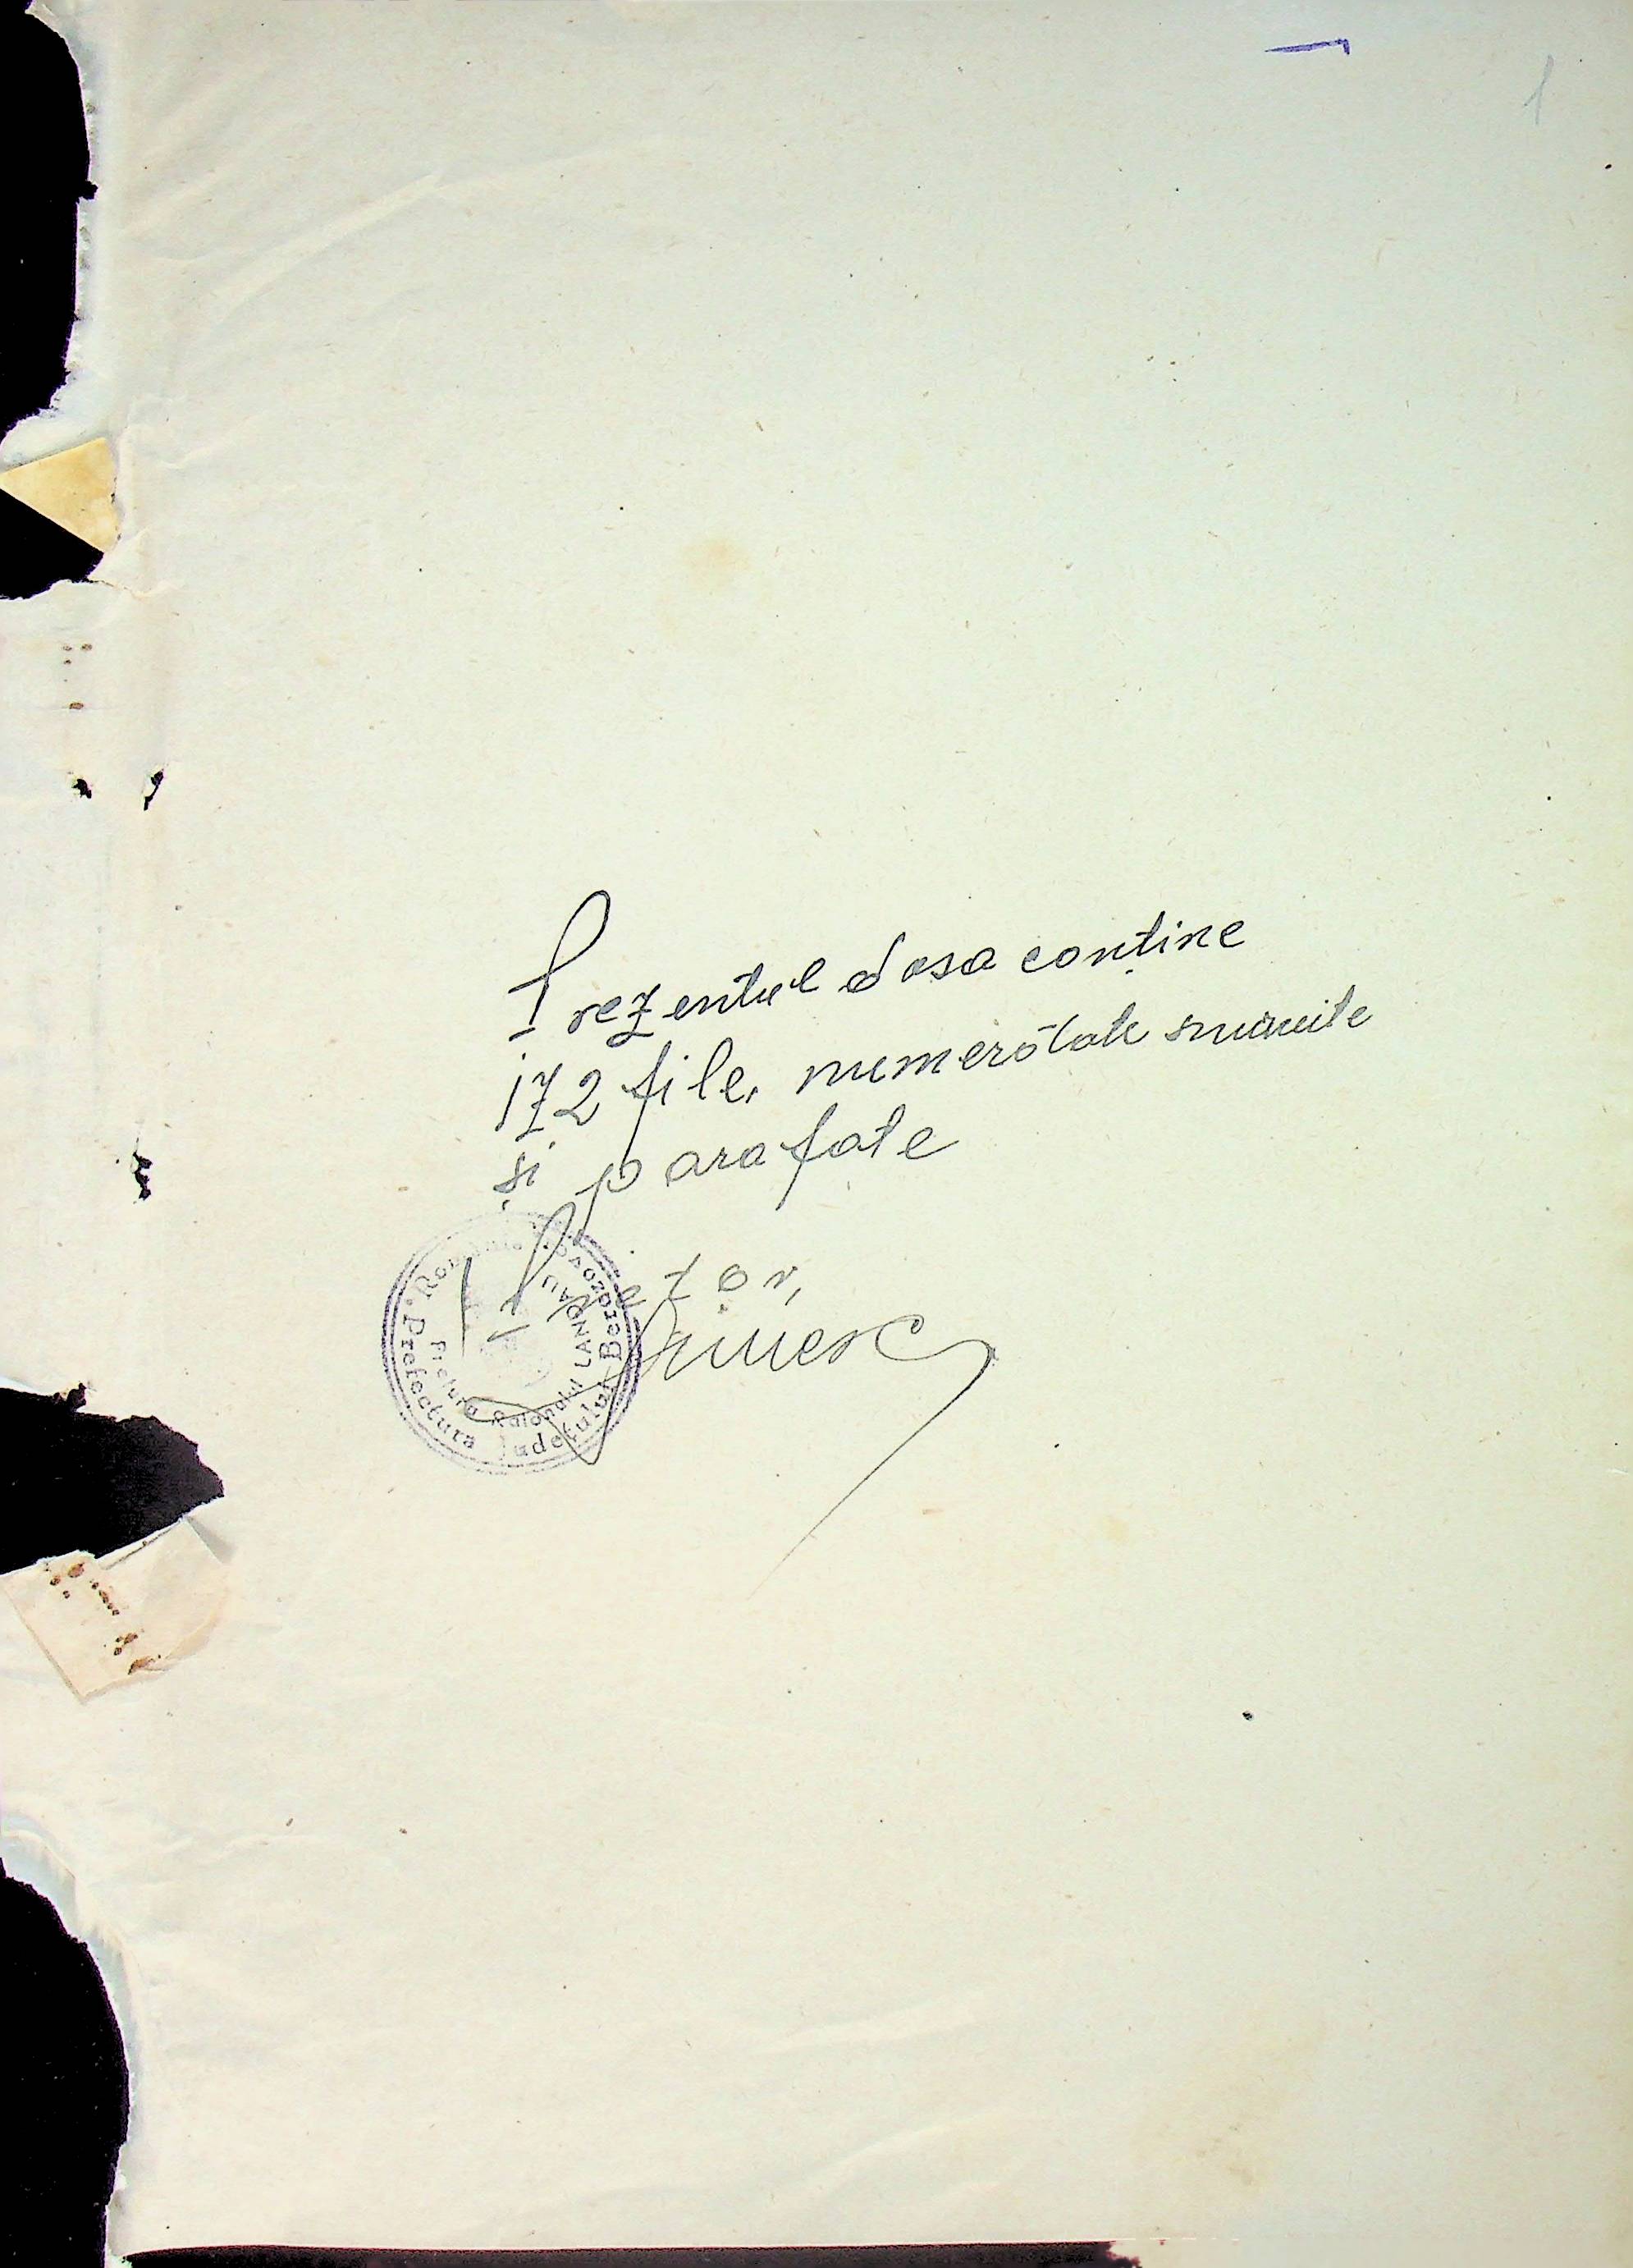 1
Prezentul dosa conține
172 file, numerotate snuruite
și parafate
Pretor,
Prefectura Județului Berezovca
Pretura Raionului LANDAU